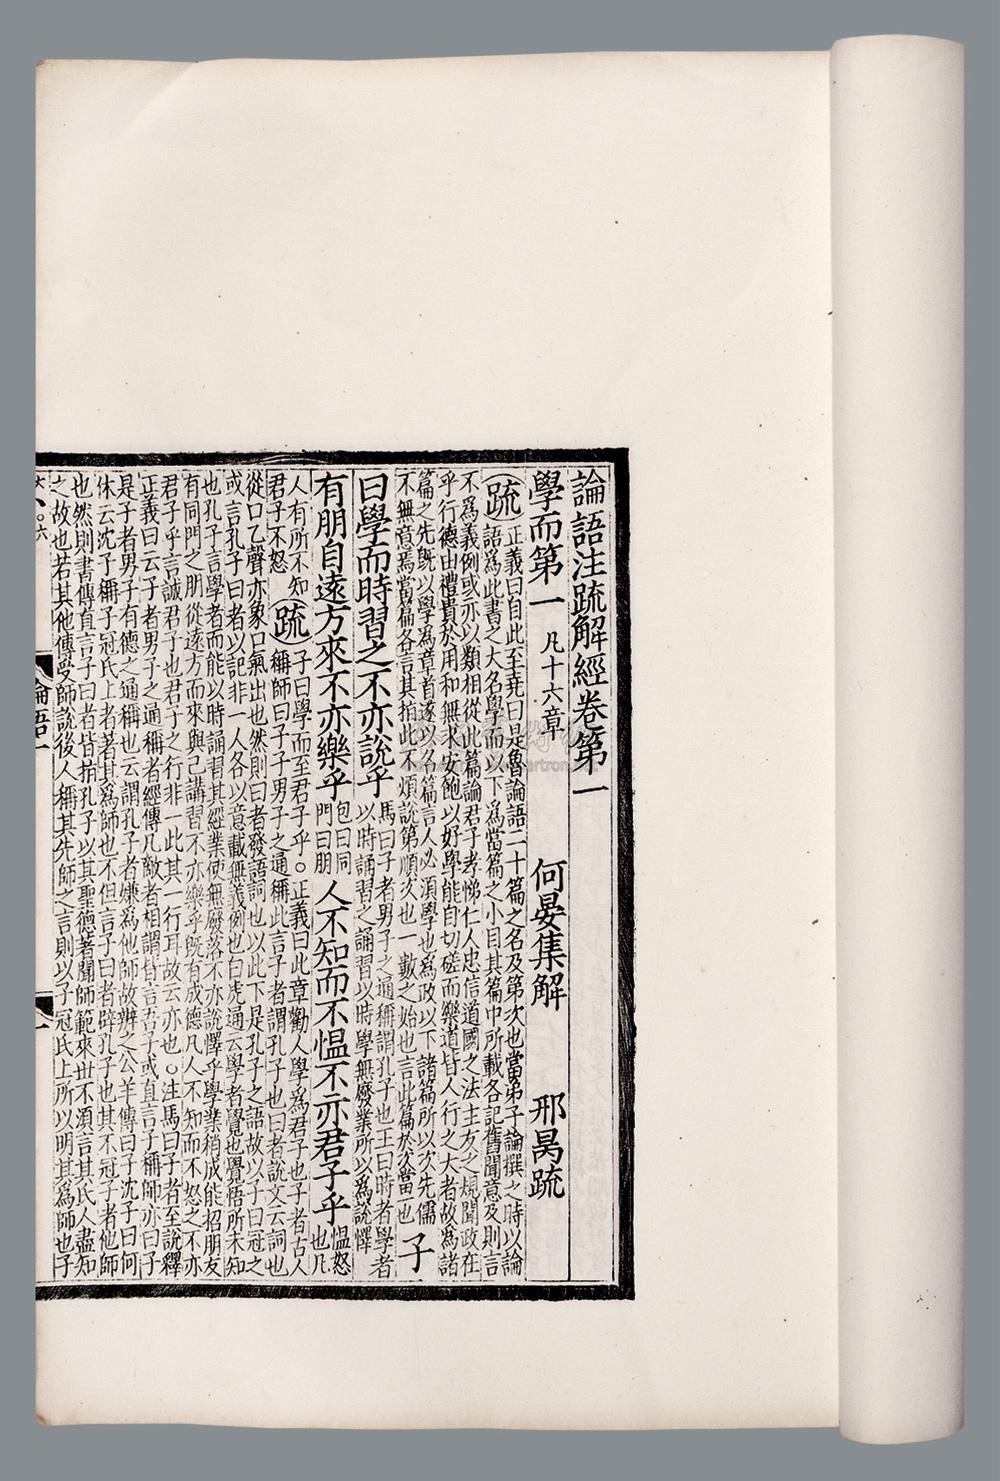 論語注疏解經卷第一
學而第一 凡十六章 何晏集解 邢昺疏
疏 正義曰自此至堯曰是魯論語二十篇之名及第次也當弟子論撰之時以論
語為此書之大名學而以下為當篇之小目其篇中所載各記舊聞意及則言
不為義例或亦以類相從此篇論君子孝悌仁人忠信道國之法主友之規聞政在
乎行德由禮貴於用和無求安飽以好學能自切磋而樂道皆人行之大者故為諸
篇之先既以學為章首遂以名篇言人必須學也為政以下諸篇所以次先儒
不無意焉當篇各言其指此不煩說第順次也一數之始也言此篇於次當一也 子
曰學而時習之不亦說乎 馬曰子者男子之通稱謂孔子也王曰時者學者
以時誦習之誦習以時學無廢業所以為說懌
有朋自遠方來不亦樂乎 包曰同
門曰朋 人不知而不慍不亦君子乎 慍怒
也凡
人有所不知
君子不怒 疏 子曰學而至君子乎。正義曰此章勸人學為君子也子者古人
稱師曰子子男子之通稱此言子者謂孔子也曰者說文云詞也
從口乙聲亦象口氣出也然則曰者發語詞也以此下是孔子之語故以子曰冠之
或言孔子曰者以記非一人各以意載無義例也白虎通云學者覺也覺悟所未知
也孔子言學者而能以時誦習其經業使無廢落不亦說懌乎學業稍成能招朋友
有同門之朋從遠方而來與己講習不亦樂乎既有成德凡人不知而不怒之不亦
君子乎言誠君子也君子之行非一此其一行耳故云亦也。注馬曰子者至說釋
正義曰云子者男子之通稱者經傳凡敵者相謂皆言吾子或直言子稱師亦曰子
是子者男子有德之通稱也云謂孔子者嫌為他師故辨之公羊傳曰子沈子曰何
休云沈子稱子冠氏上者著其為師也不但言子曰者辟孔子也其不冠子者他師
也然則書傳直言子曰者皆指孔子以其聖德著聞師範來世不須言其氏人盡知
之故也若其他傳受師說後人稱其先師之言則以子冠氏上所以明其為師也子
論語一